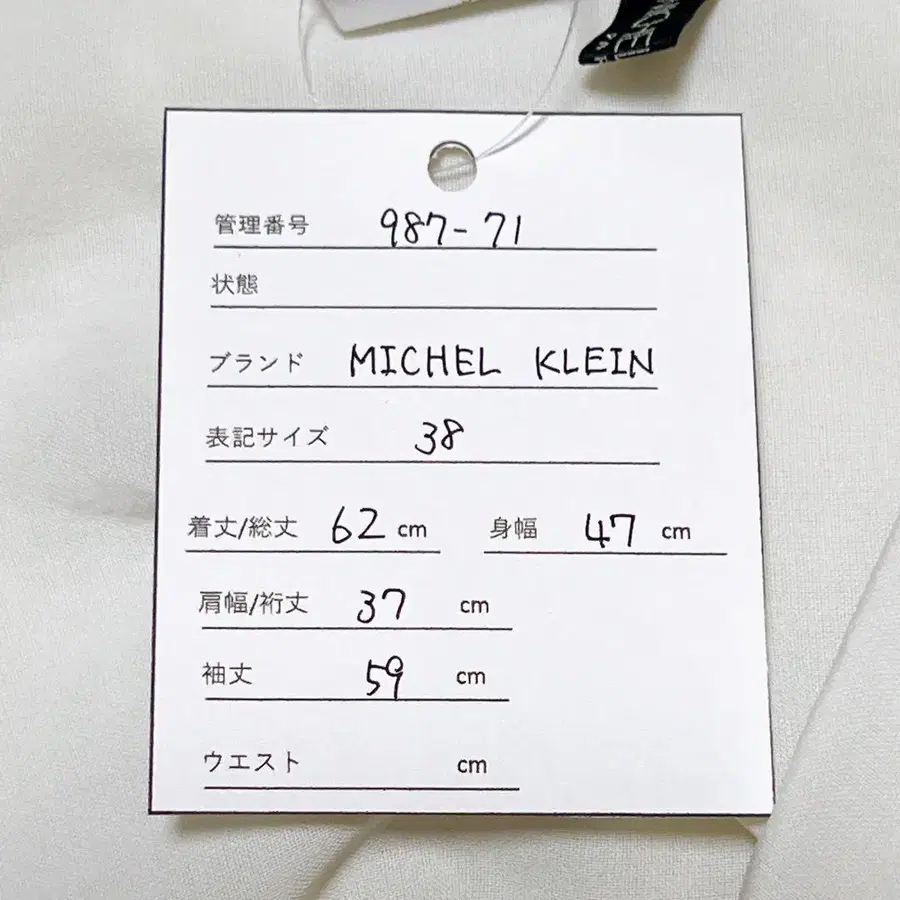 管理番号 987-71
状態
ブランド MICHEL KLEIN
表記サイズ 38
着丈/総丈 62 cm 身幅 47 cm
肩幅/裄丈 37 cm
袖丈 59 cm
ウエスト cm